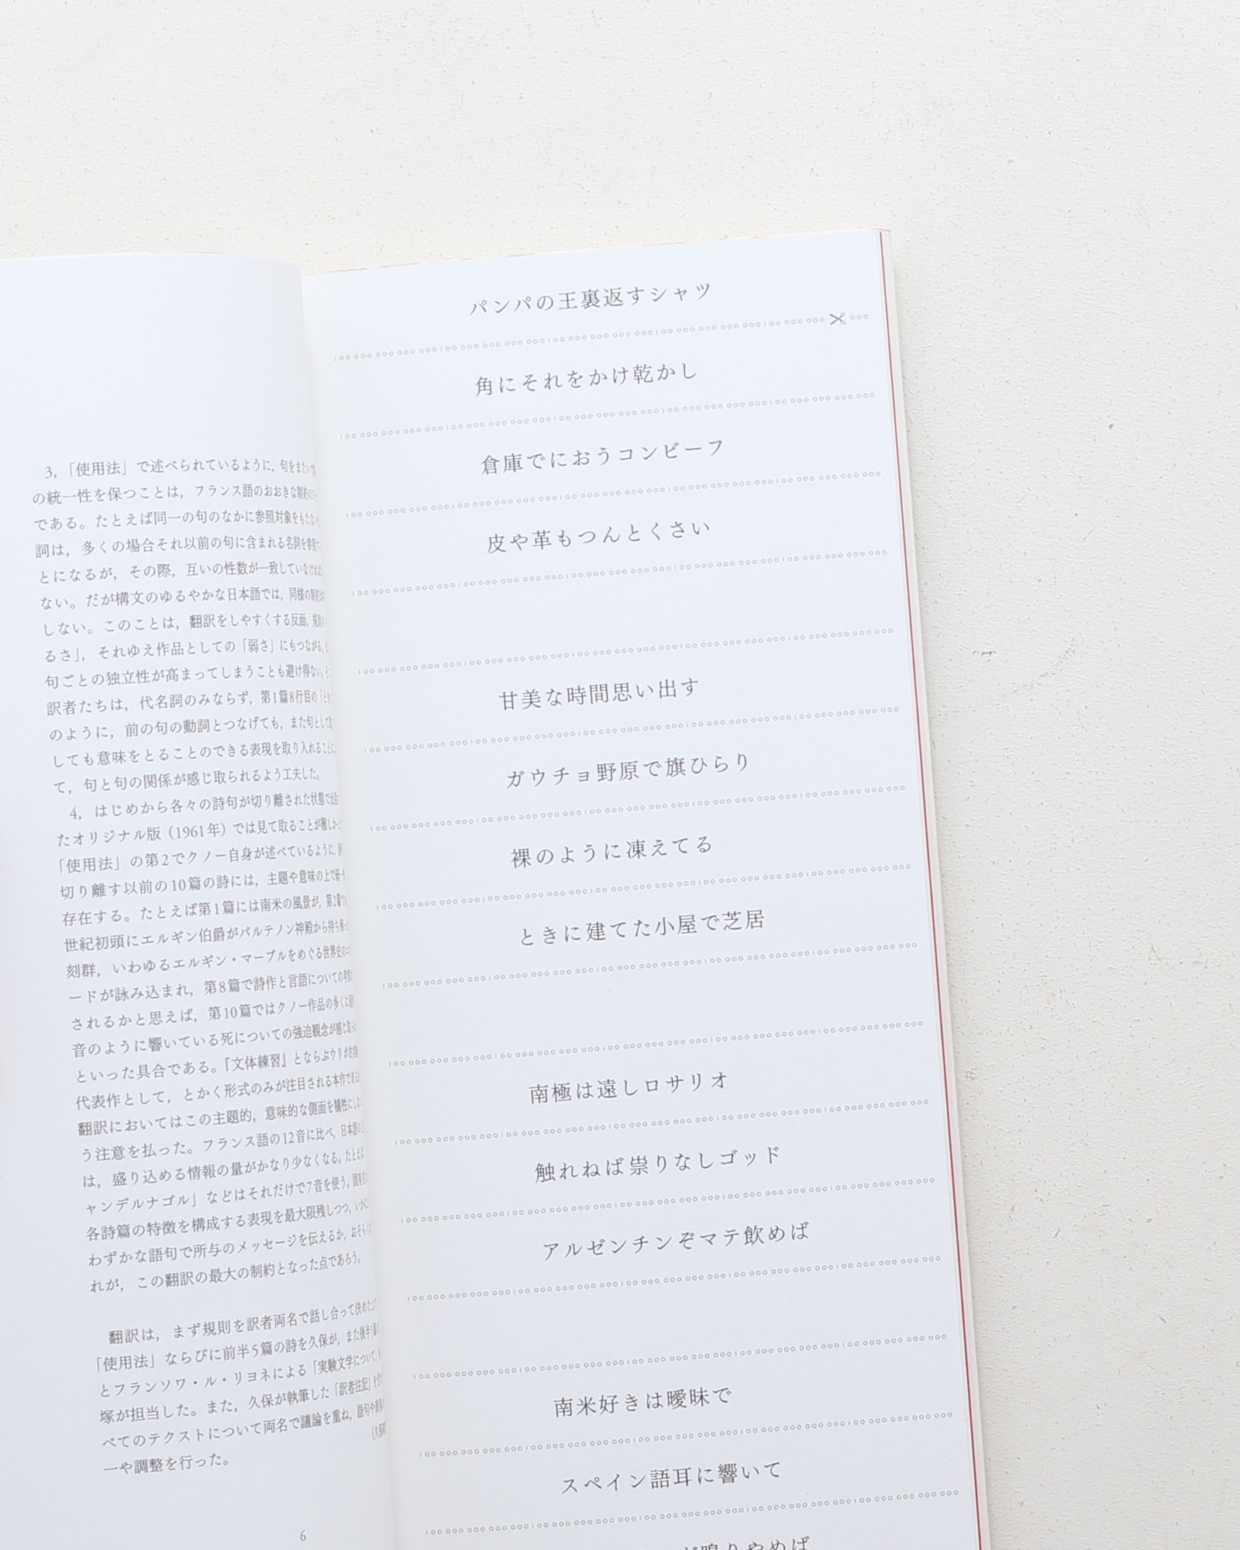 3，「使用法」で述べられているように，句をまたいで
の統一性を保つことは，フランス語のおおきな制約
である。たとえば同一の句のなかに参照対象をもたない
詞は，多くの場合それ以前の句に含まれる名詞を参照
とになるが，その際，互いの性数が一致していなければ
ない。だが構文のゆるやかな日本語では，同様の制約
しない。このことは，翻訳をしやすくする反面，
るさ」，それゆえ作品としての「弱さ」にもつながる。
句ごとの独立性が高まってしまうことも避け得ない。
訳者たちは，代名詞のみならず，第1篇8行目の
のように，前の句の動詞とつなげても，また句として
しても意味をとることのできる表現を取り入れること
て，句と句の関係が感じ取られるよう工夫した。
4，はじめから各々の詩句が切り離された状態で
たオリジナル版（1961年）では見て取ることが難し
「使用法」の第2でクノー自身が述べているように，
切り離す以前の10篇の詩には，主題や意味の上で
存在する。たとえば第1篇には南米の風景が，
世紀初頭にエルギン伯爵がパルテノン神殿から持ち
刻群，いわゆるエルギン・マーブルをめぐる世界史
ードが詠み込まれ，第8篇で詩作と言語についての
されるかと思えば，第10篇ではクノー作品の多くに
音のように響いている死についての強迫観念が感じ
といった具合である。『文体練習』とならぶウリポ
代表作として，とかく形式のみが注目される本作であ
翻訳においてはこの主題的，意味的な側面を犠牲に
う注意を払った。フランス語の12音に比べ，日本語
は，盛り込める情報の量がかなり少なくなる。たとえば
ャンデルナゴル」などはそれだけで7音を使う。
各詩篇の特徴を構成する表現を最大限残しつつ，いかに
わずかな語句で所与のメッセージを伝えるか，おそらく
れが，この翻訳の最大の制約となった点であろう。
翻訳は，まず規則を訳者両名で話し合って決めた上で
「使用法」ならびに前半5篇の詩を久保が，また後半
とフランソワ・ル・リヨネによる「実験文学について」
塚が担当した。また，久保が執筆した「訳者注記」を
べてのテクストについて両名で議論を重ね，語句や
一や調整を行った。
6
パンパの王裏返すシャツ
角にそれをかけ乾かし
倉庫でにおうコンビーフ
皮や革もつんとくさい
甘美な時間思い出す
ガウチョ野原で旗ひらり
裸のように凍えてる
ときに建てた小屋で芝居
南極は遠しロサリオ
触れねば祟りなしゴッド
アルゼンチンぞマテ飲めば
南米好きは曖昧で
スペイン語耳に響いて
鳴りやめば